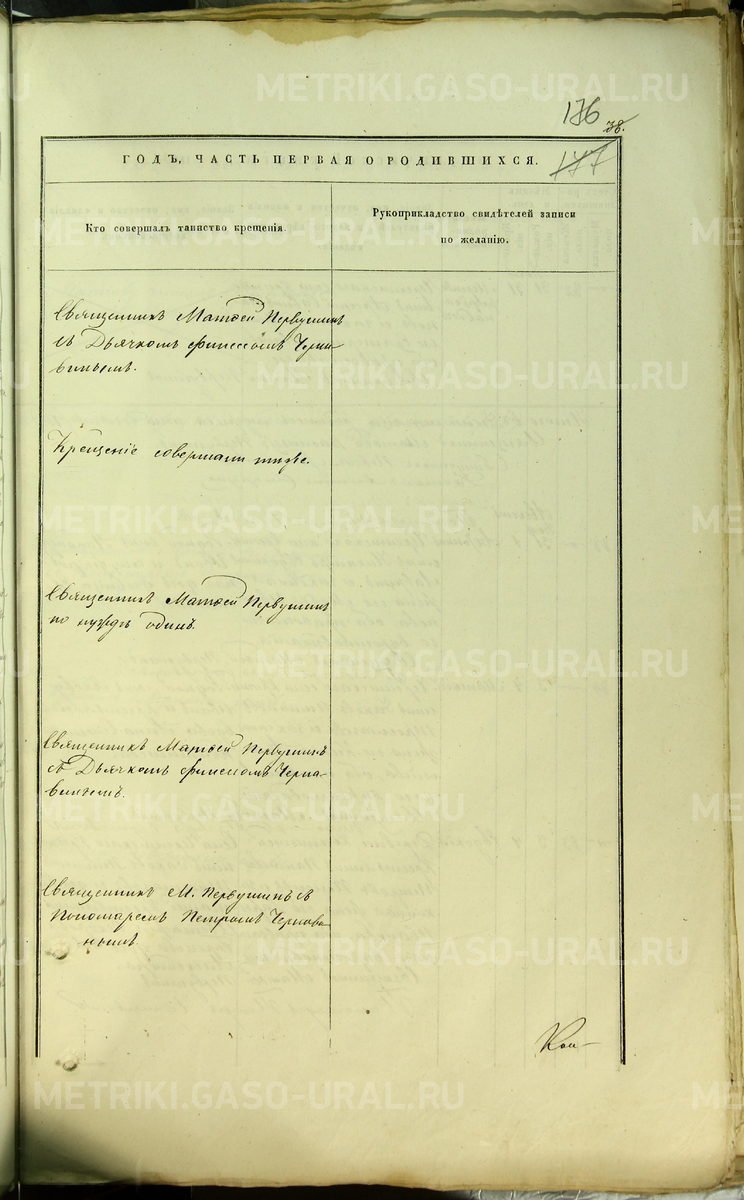 136
38.
ГОДЪ, ЧАСТЬ ПЕРВАЯ О РОДИВШИХСЯ.
177
Кто совершалъ таинство крещенія.
Рукоприкладство свидѣтелей записи
по желанію.
Священникъ Матѳей Первушинъ
съ Дьячкомъ Черна-
винымъ.
Крещеніе совершали тиже.
Священникъ Матѳей Первушинъ
по нуждѣ одинъ.
Священникъ Матѳей Первушинъ
съ Дьячкомъ Черна-
винымъ.
Священникъ М. Первушинъ съ
Пономаремъ Петромъ
METRIKI.GASO-URAL.RU